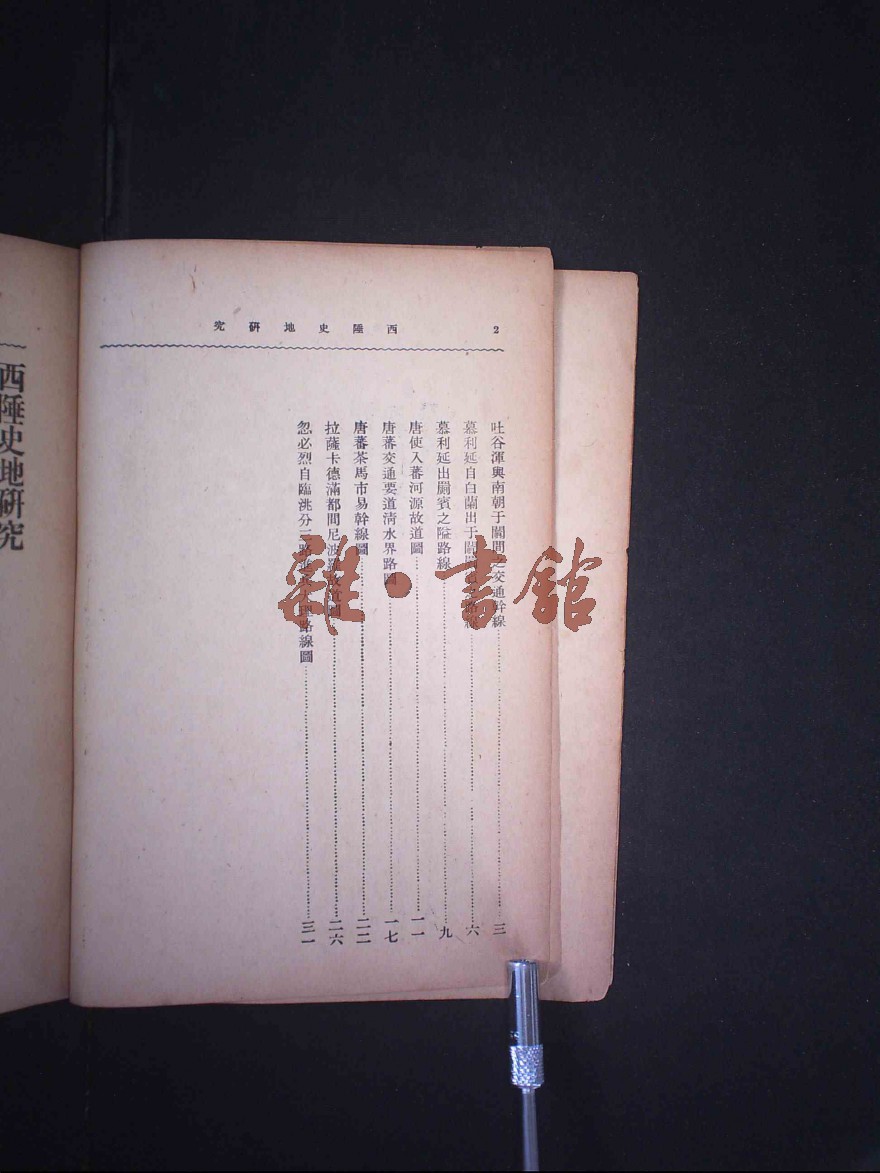 西陲史地研究
2
西陲史地研究
吐谷渾與南朝于闐間之交通幹線……三
慕利延自白蘭出于闐……路線……六
慕利延出罽賓之隘路線……九
唐使入蕃河源故道圖……一一
唐蕃交通要道清水界路圖……一七
唐蕃茶馬市易幹線圖……二二
拉薩卡德滿都間尼波羅故道圖……二六
忽必烈自臨洮分三路……大理路線圖……三一
雜·書館